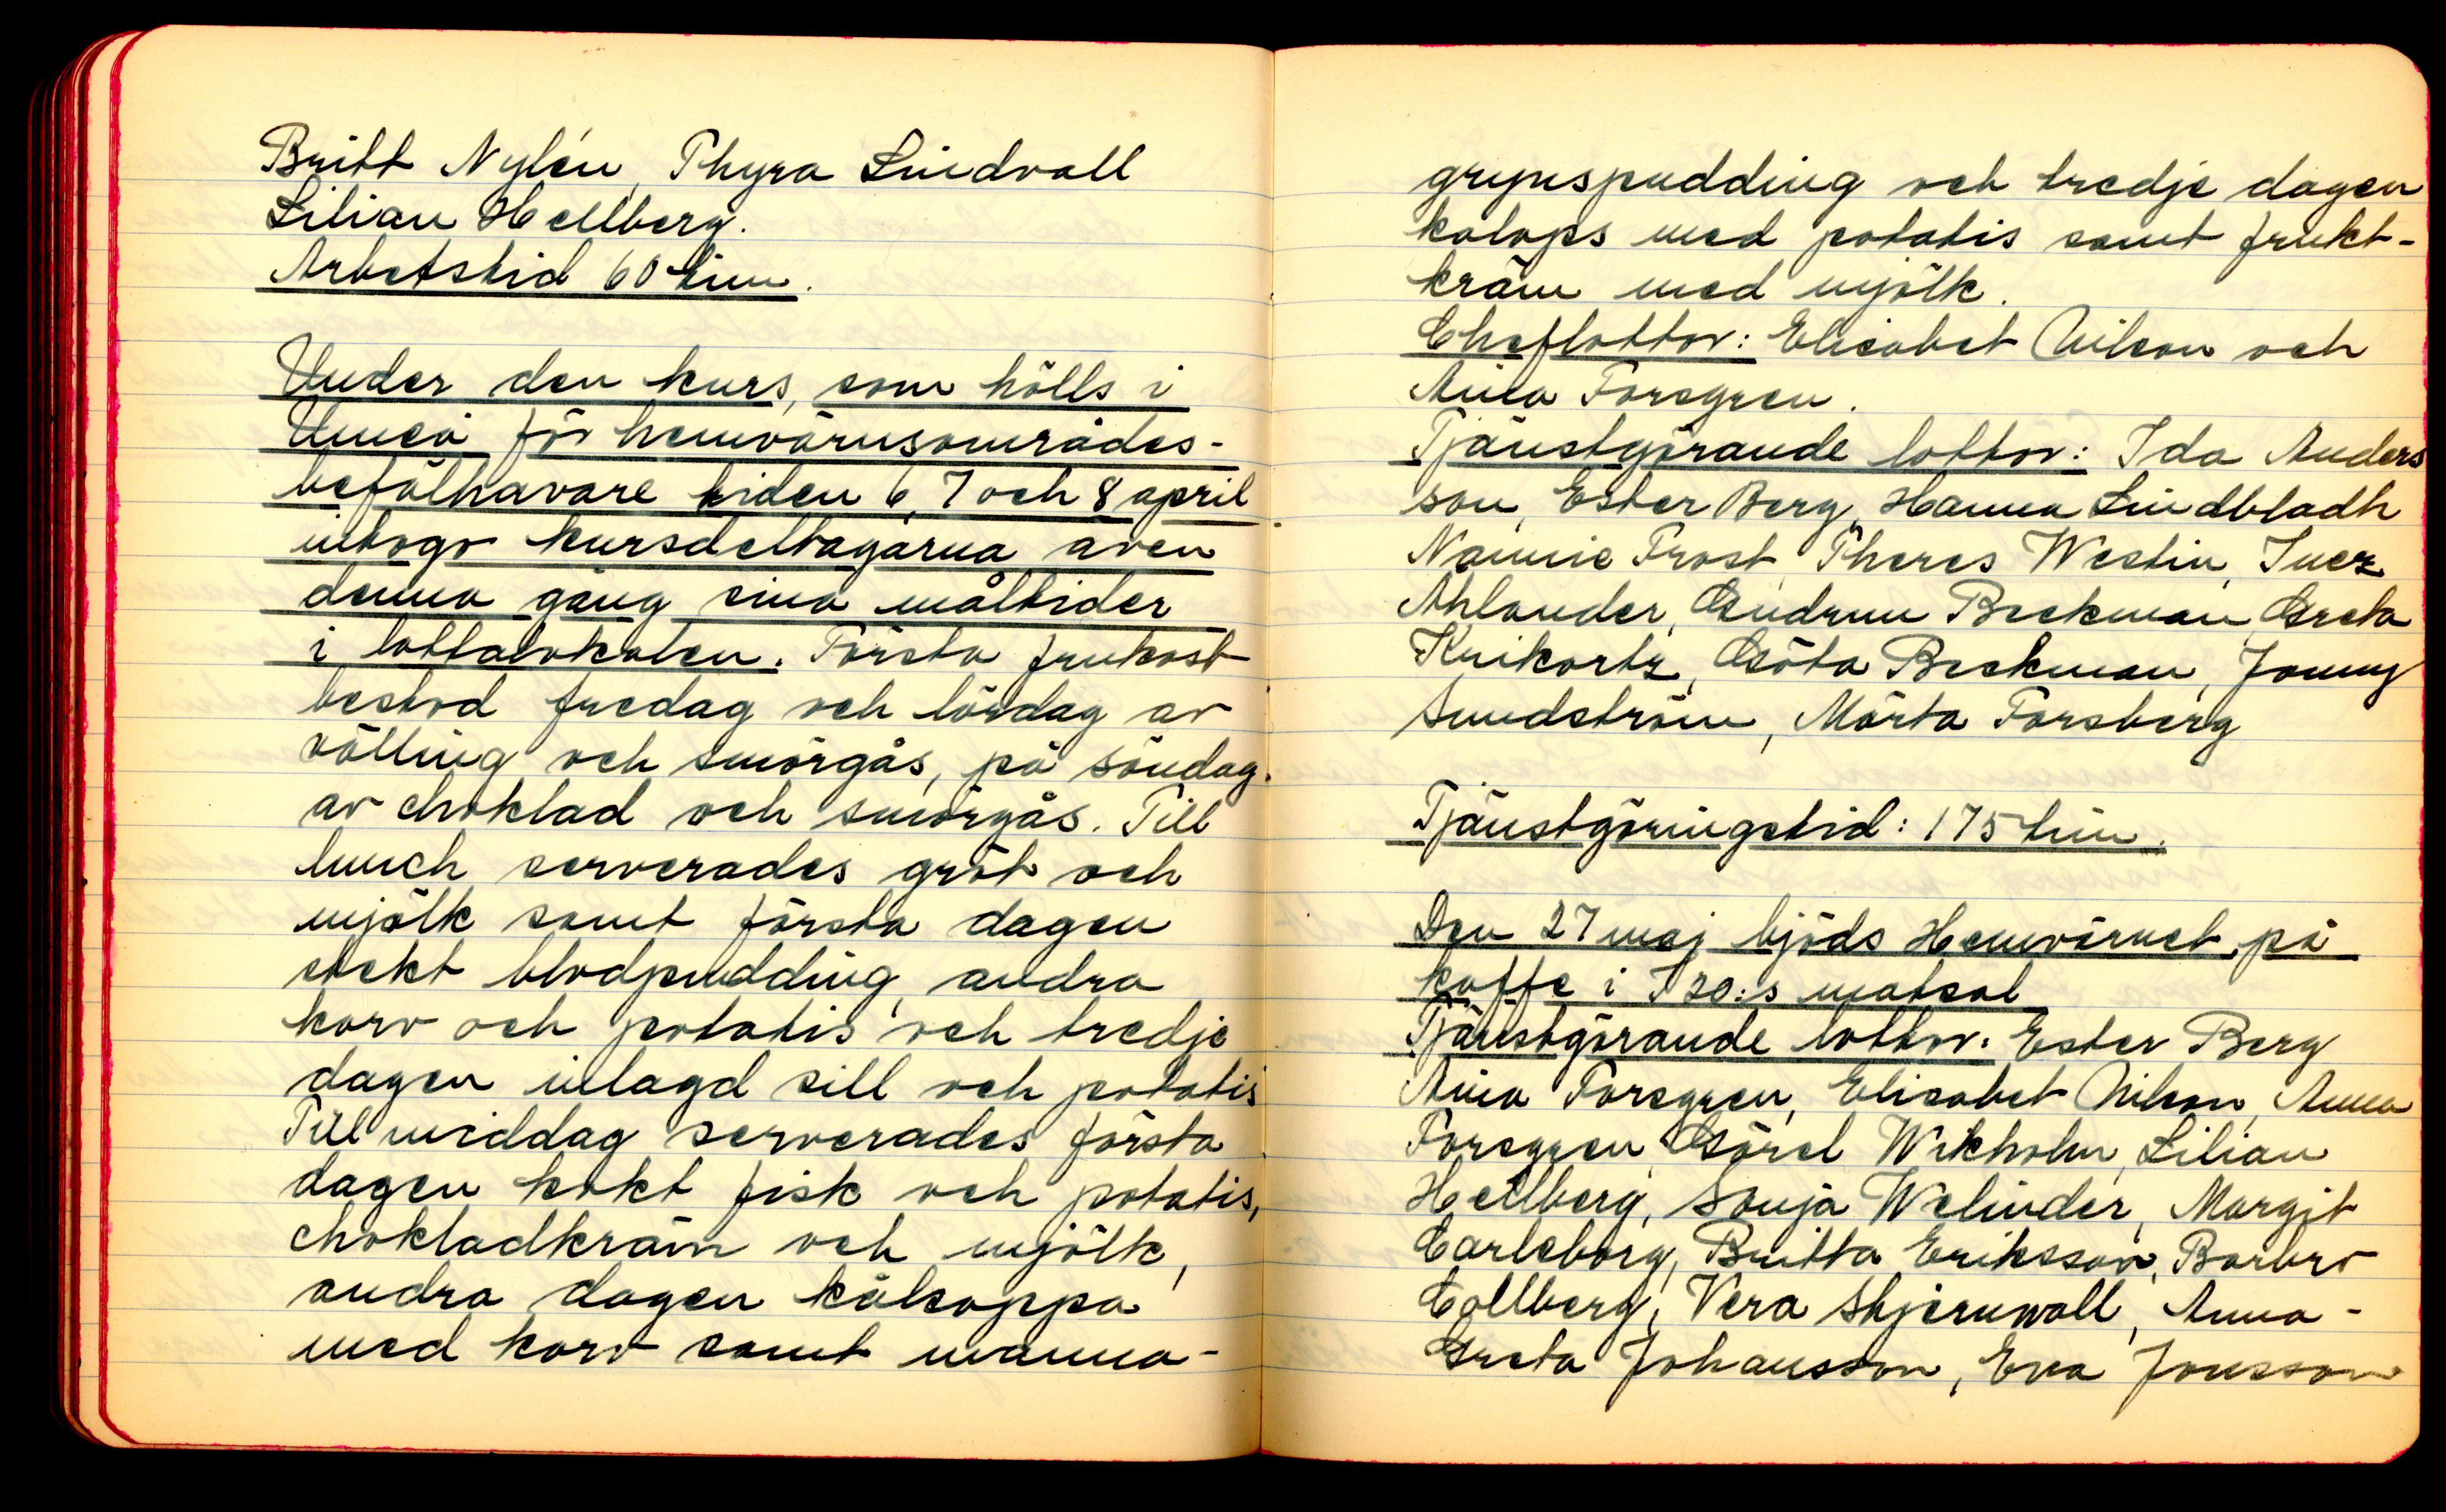 Britt Nylén, Thyra Lindvall
Lilian Hellberg.
Arbetstid 60 tim.
Under den kurs, som hölls i
Umeå för hemvärnsområdes-
befälhavare tiden 6, 7 och 8 april
intogo kursdeltagarna även
denna gång sina måltider
i lottalokalen. Första frukost
bestod fredag och lördag av
välling och smörgås, på söndag
av choklad och smörgås. Till
lunch serverades gröt och
mjölk samt första dagen
stekt blodpudding, andra
korv och potatis och tredje
dagen inlagd sill och potatis
Till middag serverades första
dagen kokt fisk och potatis,
chokladkräm och mjölk,
andra dagen kålsoppa
med korv samt manna-
grynspudding och tredje dagen
kalops med potatis samt frukt-
kräm med mjölk.
Cheflottor: Elisabet Nilson och
Aina Forsgren.
Tjänstgörande lottor: Ida Anders
son, Ester Berg, Hanna Lindbladh
Nannie Frost, Theres Westin, Inez
Ahlander, Gudrun Beckman, Greta
Krikortz, Göta Beckman, Jonny
Sundström, Märta Forsberg
Tjänstgöringstid: 175 tim.
Den 27 maj bjöds Hemvärnet på
kaffe i I 20:s matsal
Tjänstgörande lottor: Ester Berg
Aina Forsgren, Elisabet Nilson, Anna
Forsgren, Görel Wikholm, Lilian
Hellberg, Sonja Welinder, Margit
Carleborg, Britta Eriksson, Barbro
Collberg, Vera Skjernwall, Anna-
Greta Johansson, Eva Jonsson